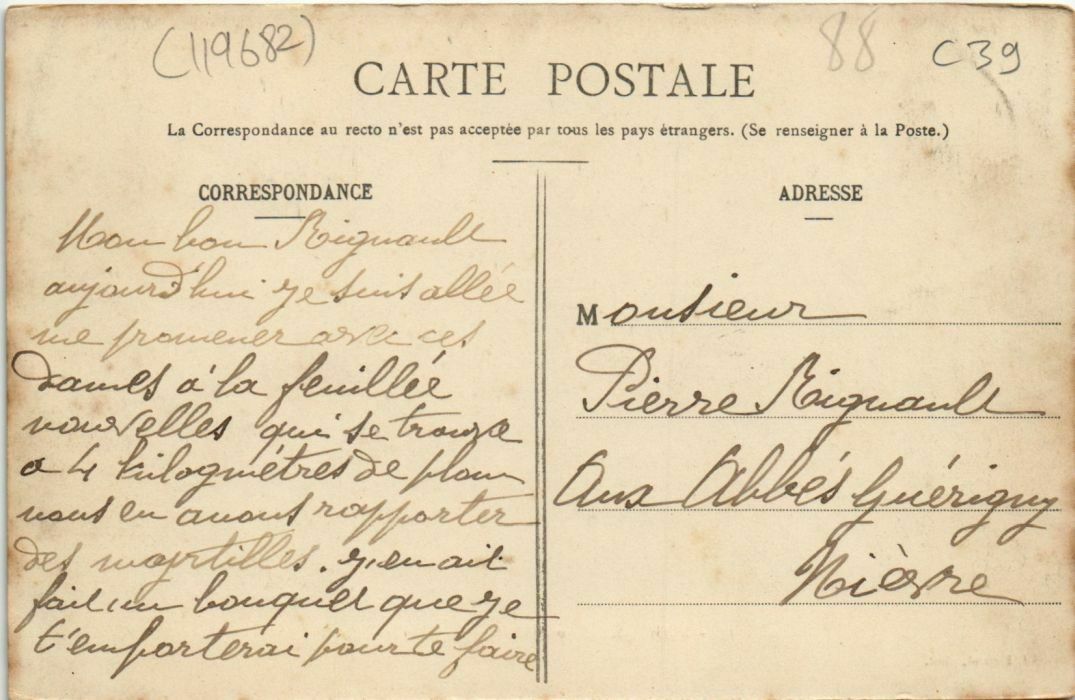 (119682)
88
C39
CARTE POSTALE
La Correspondance au recto n'est pas acceptée par tous les pays étrangers. (Se renseigner à la Poste.)
CORRESPONDANCE
Mon bon Rignault
aujourd'hui je suis allée
me promener avec ces
dames à la feuillée
nouvelles qui se trouve
a 4 kilogmétres de plom
nous en avons rapporter
des myrtilles. j'en ait
fait un bouquet que je
t'emporterai pour te faire
ADRESSE
Monsieur
Pierre Rignault
Aux Abbés Guérigny
Nièvre